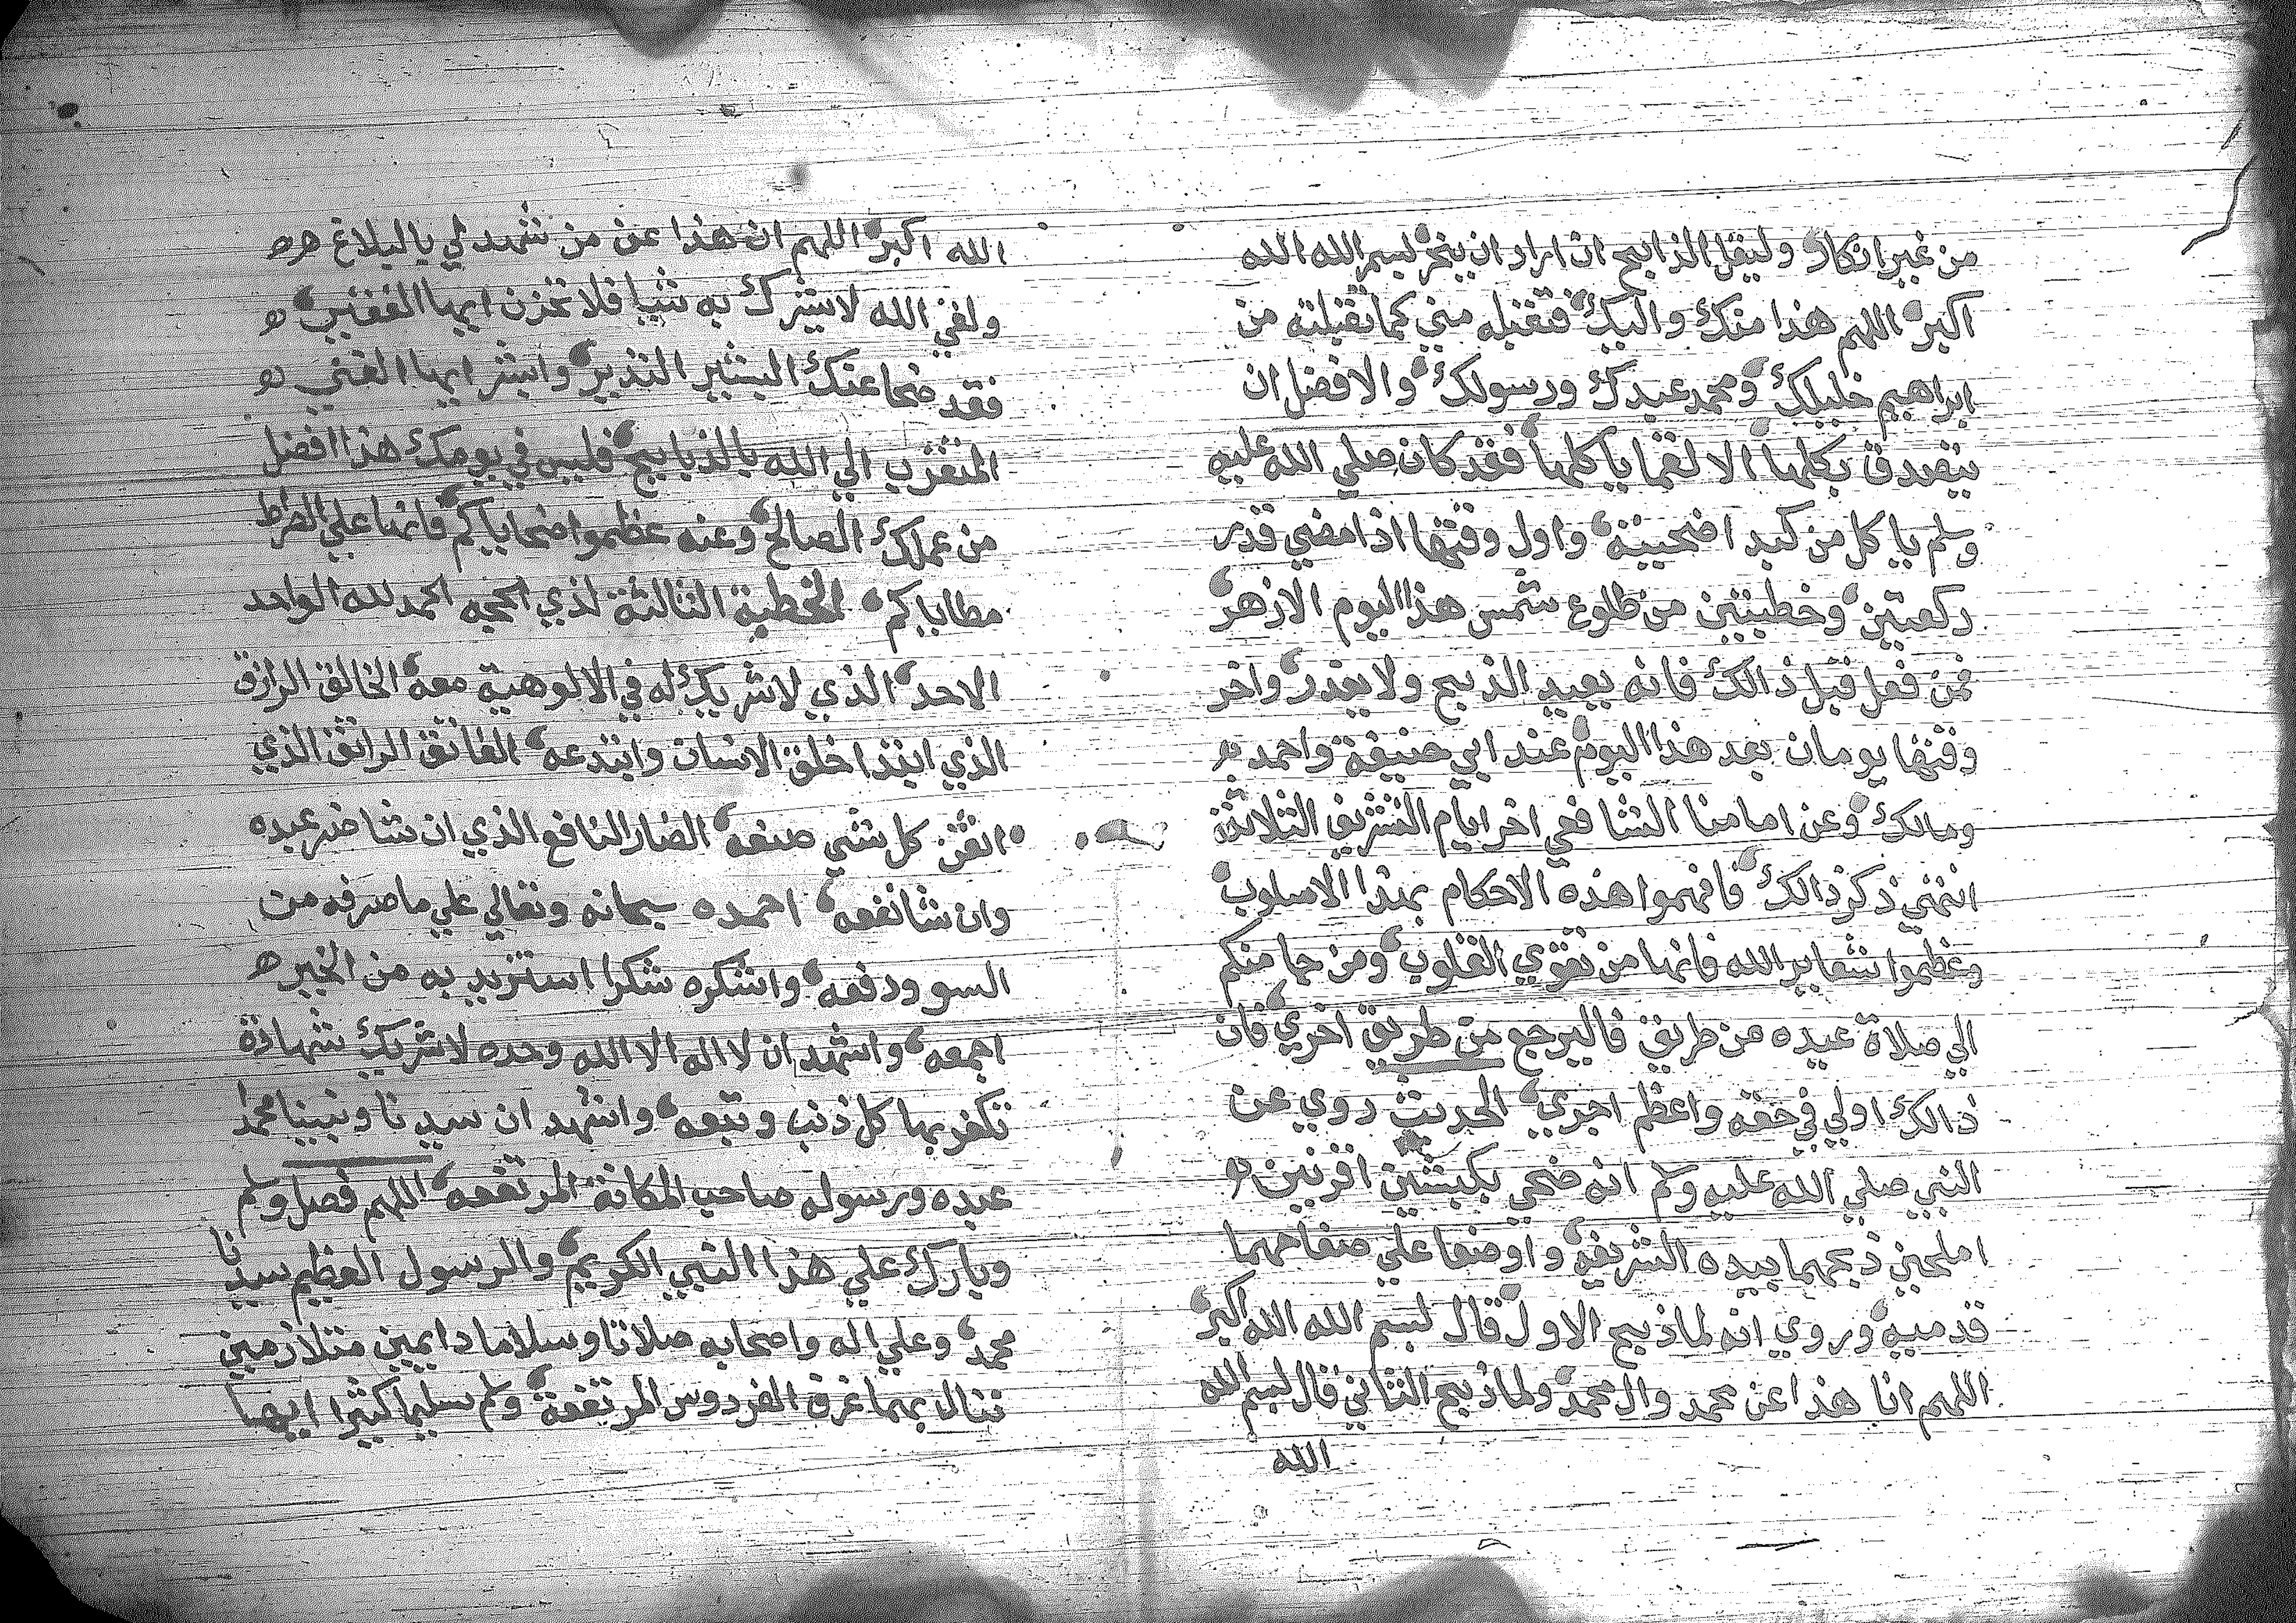 من غير انكار وليقل الذابح ان اراد ان ينحر بسم الله الله
اكبر اللهم هذا منك واليك فتقبله مني كما تقبلته من
ابراهيم خليلك ومحمد عبدك ورسولك والافضل ان
يتصدق بكلها الا لقما ياكلها فقد كان صلي الله عليه
وسلم ياكل من كبد اضحيته واول وقتها اذا مضي قدر
ركعتين وخطبتين من طلوع شمس هذا اليوم الازهر
فمن فعل قبل ذالك فانه يعيد الذبح ولا يعذر واخر
وقتها يومان بعد هذا اليوم عند ابي حنيفة واحمد
ومالك وعن امامنا الشافعي اخر ايام التشريق الثلاثة
انتهي ذكر ذالك فافهموا هذه الاحكام بهذا الاسلوب
وعظموا شعاير الله فانها من تقوي القلوب ومن جا منكم
الي صلاة عيده من طريق فاليرجع من طريق اخري فان
ذالك اولي في حقه واعظم اجري الحديث روي عن
النبي صلي الله عليه وسلم انه ضحي بكبشين اقرنين
املحين ذبحهما بيده الشريفة واوضعا علي صفاحهما
قدميه وروي انه لما ذبح الاول قال بسم الله الله اكبر
اللهم انا هذا عن محمد وال محمد ولما ذبح الثاني قال بسم الله
الله
الله اكبر اللهم ان هذا عن من شهد لي بالبلاغ
ولقي الله لا يشرك به شيا فلا تحزن ايها الفقير
فقد ضحا عنك البشير النذير وابشر ايها الغني
المتقرب الي الله بالذبايح فليس في يومك هذا افضل
من عملك الصالح وعنه عظموا ضحاياكم فانها علي الصراط
مطاياكم الخطبة الثالثة لذي الحجه الحمد لله الواحد
الاحد الذي لا شريك له في الالوهية معه الخالق الرازق
الذي ابتدا خلق الانسان وابتدعه الفاتق الراتق الذي
اتقن كل شي صنعه الضار النافع الذي ان شا ضر عبده
وان شا نفعه احمده سبحانه وتعالي علي ما صرفه من
السو ودفعه واشكره شكرا استزيد به من الخير
اجمعه واشهد ان لا اله الا الله وحده لا شريك شهادة
تكفر بها كل ذنب وتبعه واشهد ان سيدنا ونبينا محمدا
عبده ورسوله صاحب المكانة المرتفعه اللهم فصل وسلم
وبارك علي هذا النبي الكريم والرسول العظيم سيدنا
محمد وعلي اله واصحابه صلاتا وسلاما دايمين متلازمين
ننال بهما غرف الفردوس المرتفعة وسلم تسليما كثيرا ايها